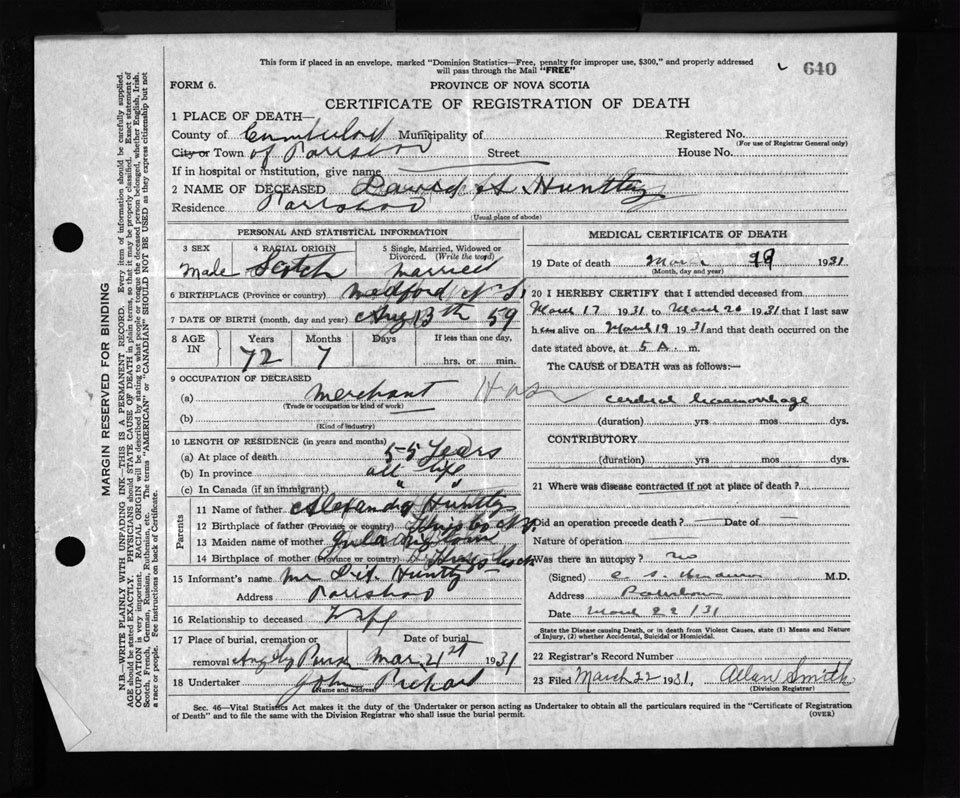 This form if placed in an envelope, marked "Dominion Statistics—Free, penalty for improper use, $300," and properly addressed
will pass through the Mail "FREE"
640
FORM 6.
PROVINCE OF NOVA SCOTIA
CERTIFICATE OF REGISTRATION OF DEATH
1 PLACE OF DEATH—
County of Cumberland Municipality of Registered No.
(For use of Registrar General only)
City or Town of Parrsboro Street House No.
If in hospital or institution, give name
2 NAME OF DECEASED David H. Huntley
Residence Parrsboro
(Usual place of abode)
PERSONAL AND STATISTICAL INFORMATION
3 SEX 4 RACIAL ORIGIN 5 Single, Married, Widowed or
Divorced. (Write the word)
Male Scotch Married
6 BIRTHPLACE (Province or country) Medford N.S.
7 DATE OF BIRTH (month, day and year) Aug 13th 59
8 AGE IN Years Months Days If less than one day,
72 7 hrs. or min.
9 OCCUPATION OF DECEASED
(a) Merchant
(Trade or occupation or kind of work)
(b)
(Kind of industry)
10 LENGTH OF RESIDENCE (in years and months)
(a) At place of death 55 Years
(b) In province all life
(c) In Canada (if an immigrant) " "
Parents
11 Name of father Alexander Huntley
12 Birthplace of father (Province or country) Kings Co N.S.
13 Maiden name of mother
14 Birthplace of mother (Province or country) Kings
15 Informant's name Huntley
Address Parrsboro
16 Relationship to deceased Wife
17 Place of burial, cremation or Date of burial
removal Mar 21st 1931
18 Undertaker John
(Name and address)
MEDICAL CERTIFICATE OF DEATH
19 Date of death 1931
(Month, day and year)
20 I HEREBY CERTIFY that I attended deceased from
March 17 1931 to March 20 1931 that I last saw
him alive on March 19 1931 and that death occurred on
date stated above, at 5 A. m.
The CAUSE of DEATH was as follows:—
cerebral haemorrhage
(duration) yrs mos dys.
CONTRIBUTORY
(duration) yrs mos dys.
21 Where was disease contracted if not at place of death?
Did an operation precede death? — Date of —
Nature of operation
Was there an autopsy? no
(Signed) M.D.
Address Parrsboro
Date March 22/31
State the Disease causing Death, or in death from Violent Causes, state (1) Means and Nature
of Injury, (2) whether Accidental, Suicidal or Homicidal.
22 Registrar's Record Number
23 Filed March 22 1931, Allan Smith
(Division Registrar)
Sec. 46—Vital Statistics Act makes it the duty of the Undertaker or person acting as Undertaker to obtain all the particulars required in the "Certificate of Registration
of Death" and to file the same with the Division Registrar who shall issue the burial permit. (OVER)
MARGIN RESERVED FOR BINDING
N.B.—WRITE PLAINLY WITH UNFADING INK—THIS IS A PERMANENT RECORD. Every item of information should be carefully supplied.
AGE should be stated EXACTLY. PHYSICIANS should STATE CAUSE OF DEATH in plain terms, so that it may be properly classified. Exact statement of
OCCUPATION is very important. RACIAL ORIGIN will be described by stating to what people or tongue the deceased person belonged, whether English, Irish,
Scotch, French, German, Russian, Ruthenian, etc. The terms "AMERICAN" or "CANADIAN" SHOULD NOT BE USED as they express citizenship but not
a race or people. Fee instructions on back of Certificate.